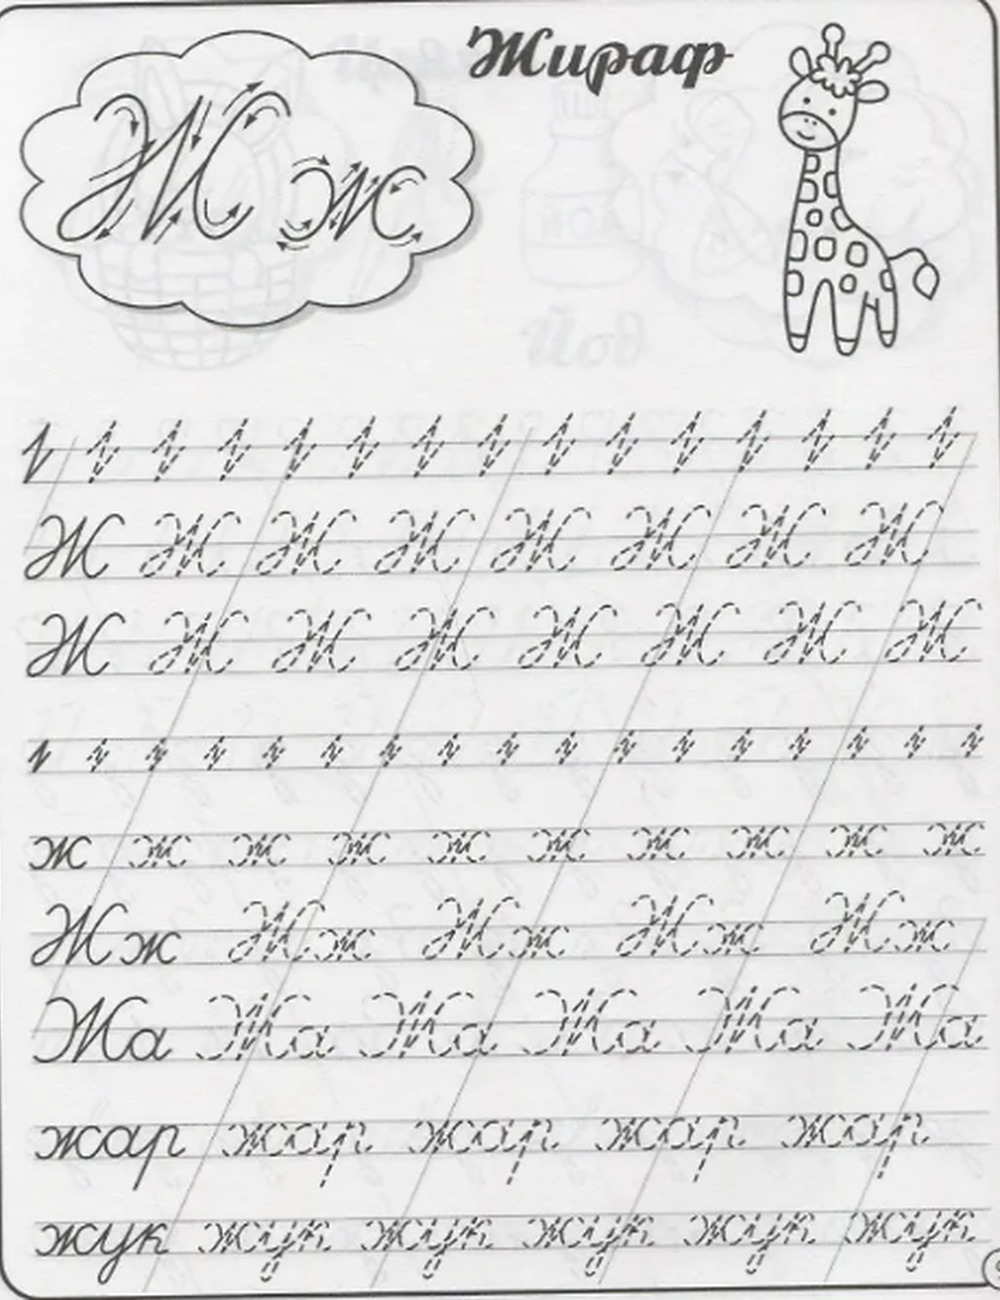 Жираф
Ж ж
Ж Ж Ж Ж Ж Ж Ж Ж
Ж Ж Ж Ж Ж Ж Ж Ж
ж ж ж ж ж ж ж ж ж ж
Жж Жж Жж Жж Жж
Жа Жа Жа Жа Жа Жа
жар жар жар жар жар
жук жук жук жук жук жук